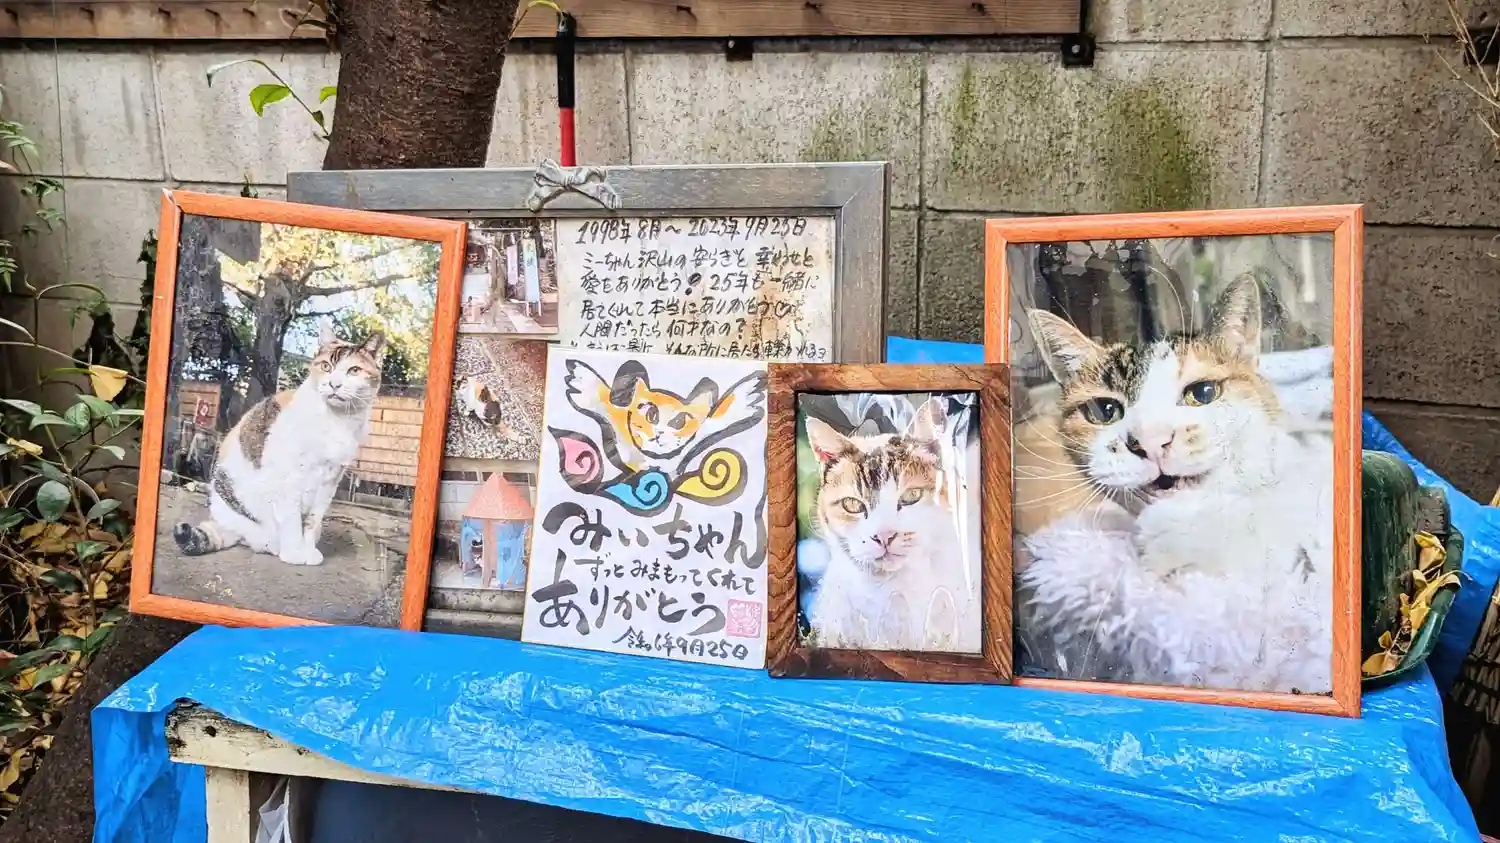 1998年8月～2023年9月25日
ミーちゃん沢山の安らぎと幸わせと
愛をありがとう! 25年も一緒に
居てくれて本当にありがとう
人間だったら何才なの?
みぃちゃん
ずっとみまもってくれて
ありがとう
9月25日